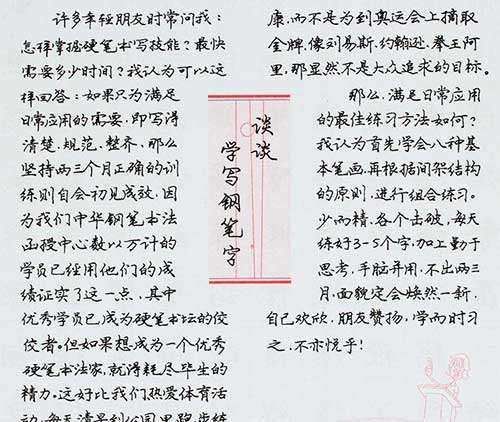 许多年轻朋友时常问我：
怎样掌握硬笔书写技能？最快
需要多少时间？我认为可以这
样回答：如果只为满足
日常应用的需要，即写得
清楚、规范、整齐，那么
坚持两三个月正确的训
练则自会初见成效，因
为我们中华钢笔书法
函授中心数以万计的
学员已经用他们的成
绩证实了这一点，其中
优秀学员已成为硬笔书坛的佼
佼者。但如果想成为一个优秀
硬笔书法家，就得耗尽毕生的
精力。这好比我们热爱体育活
动，每天清早到公园里跑步练
谈谈
学写钢笔字
康，而不是为到奥运会上摘取
金牌，像刘易斯、约翰逊、拳王阿
里，那显然不是大众追求的目标。
那么，满足日常应用
的最佳练习方法如何？
我认为首先学会八种基
本笔画，再根据间架结构
的原则，进行组合练习。
少而精，各个击破，每天
练好3-5个字，加上勤于
思考，手脑并用，不出两三
月，面貌定会焕然一新，
自己欢欣，朋友赞扬，学而时习
之，不亦悦乎！